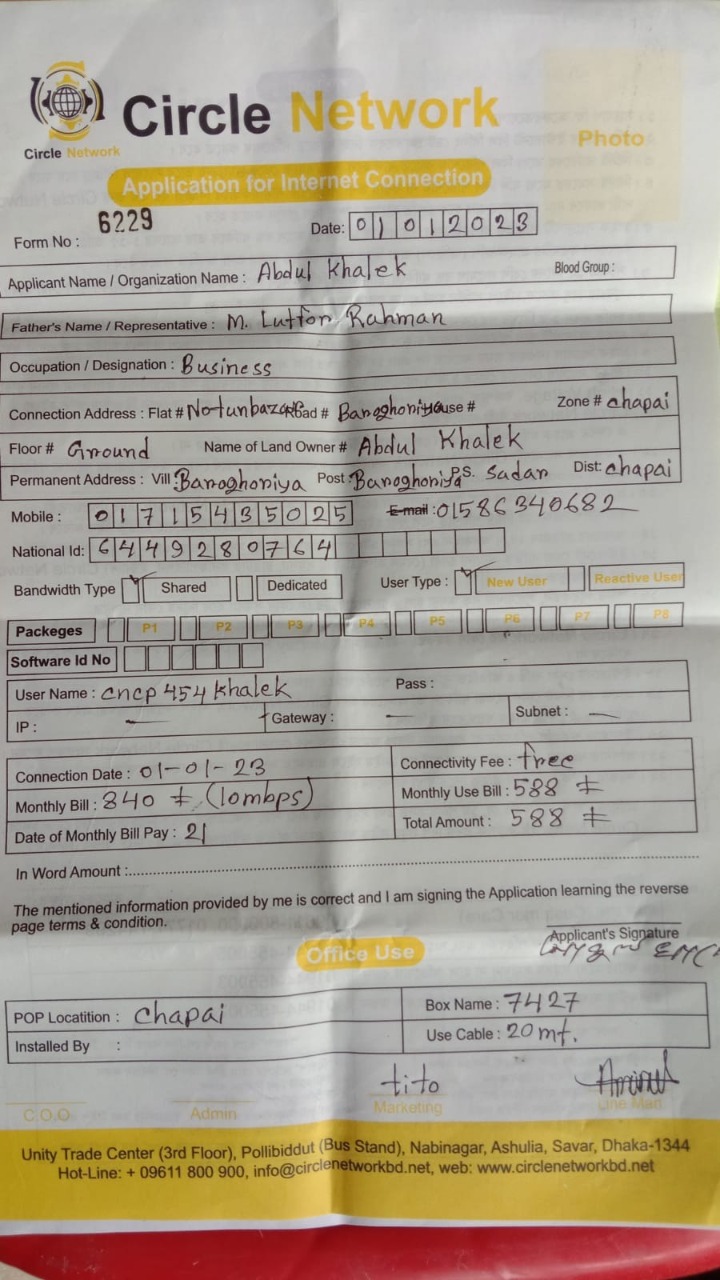 Circle Network
Circle Network
Photo
Application for Internet Connection
Form No : 6229
Date: 01012023
Applicant Name / Organization Name : Abdul Khalek Blood Group :
Father's Name / Representative : M. Lutfor Rahman
Occupation / Designation : Business
Connection Address : Flat # Notunbazar Road # Baroghoriya House # Zone # chapai
Floor # Ground Name of Land Owner # Abdul Khalek
Permanent Address : Vill Baroghoriya Post Baroghoriya P.S. Sadar Dist: chapai
Mobile : 01715435025 E-mail : 01586340682
National Id: 6449280764
Bandwidth Type Shared Dedicated User Type : New User Reactive User
Packeges P1 P2 P3 P4 P5 P6 P7 P8
Software Id No
User Name : cncp454khalek Pass :
IP : — Gateway : — Subnet : —
Connection Date : 01-01-23 Connectivity Fee : free
Monthly Bill : 840 ৳ (10mbps) Monthly Use Bill : 588 ৳
Date of Monthly Bill Pay : 21 Total Amount : 588 ৳
In Word Amount :
The mentioned information provided by me is correct and I am signing the Application learning the reverse
page terms & condition.
Applicant's Signature
Office Use
POP Locatition : chapai Box Name : 7427
Installed By : Use Cable : 20 mt.
tito Aminul
C.O.O Admin Marketing Line Man
Unity Trade Center (3rd Floor), Pollibiddut (Bus Stand), Nabinagar, Ashulia, Savar, Dhaka-1344
Hot-Line: + 09611 800 900, info@circlenetworkbd.net, web: www.circlenetworkbd.net